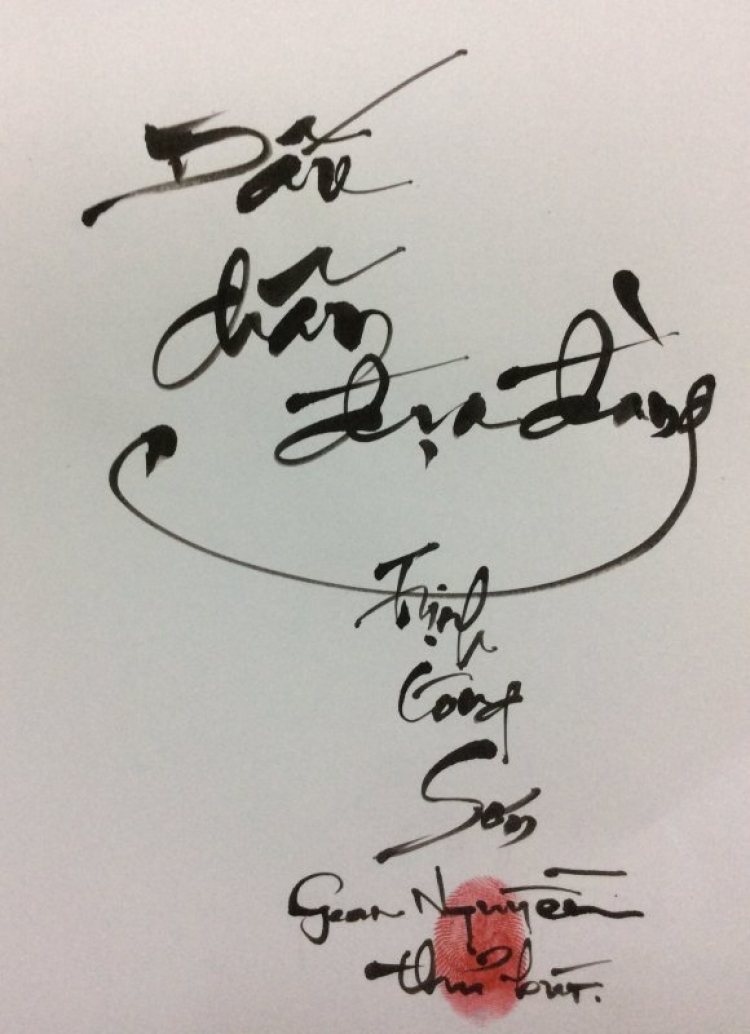 Dấu
chân
địa đàng
Trịnh
Công
Sơn
Gean Nguyễn
thủ bút.